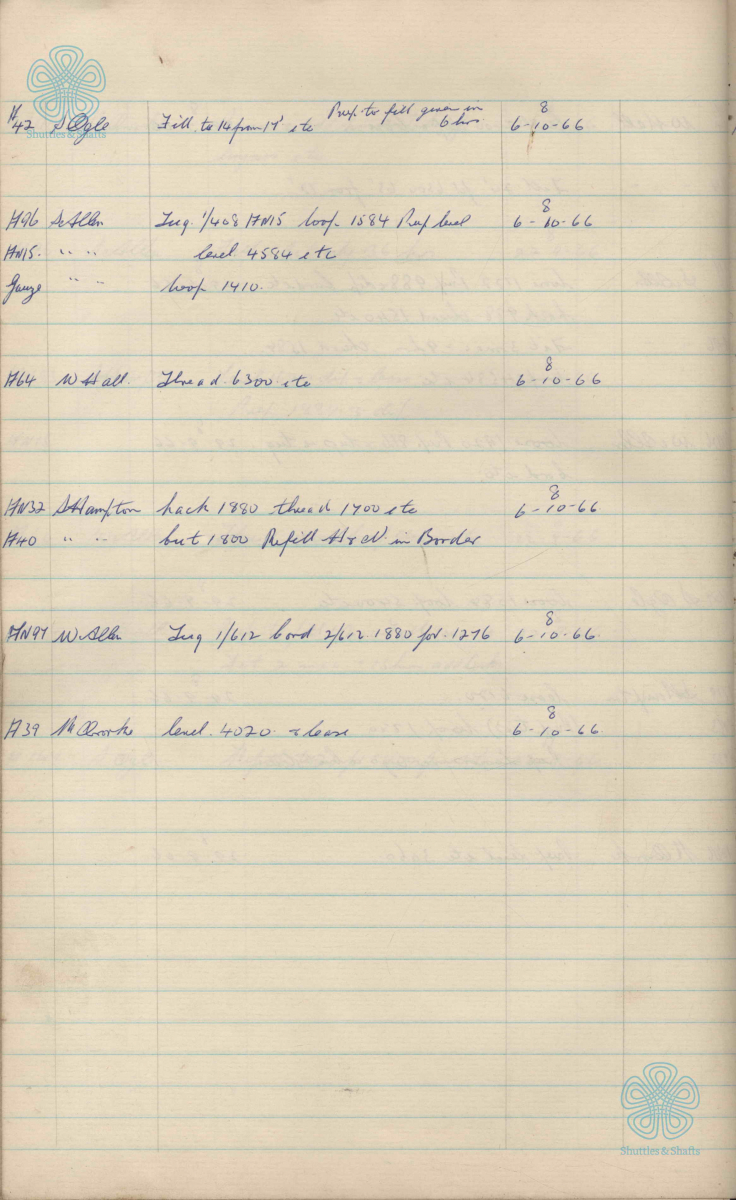 Shuttles & Shafts
Prep to fill given in
42 S Ogle Fill to 14 from 17 etc 6 hrs 8
6-10-66
96 S Allen 1/408 HN15 loop 1584 Prep level 8
6-10-66
HN15. " " level 4584 etc
Gauze " " loop 1410.
H64 W Hall. Thread 6300 etc 8
6-10-66
HN32 S Hampton hack 1880 thread 1700 etc 8
6-10-66
H40 " " but 1800 Refill in Border
HN97 W Allen 1/612 bord 2/612 1880 for 1276 8
6-10-66.
H39 level. 4020. 8
6-10-66.
Shuttles & Shafts